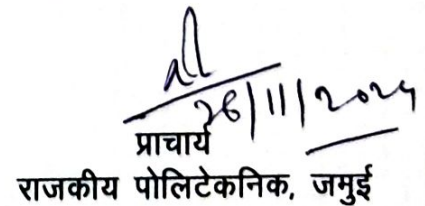 26/11/2024
प्राचार्य
राजकीय पोलिटेकनिक, जमुई